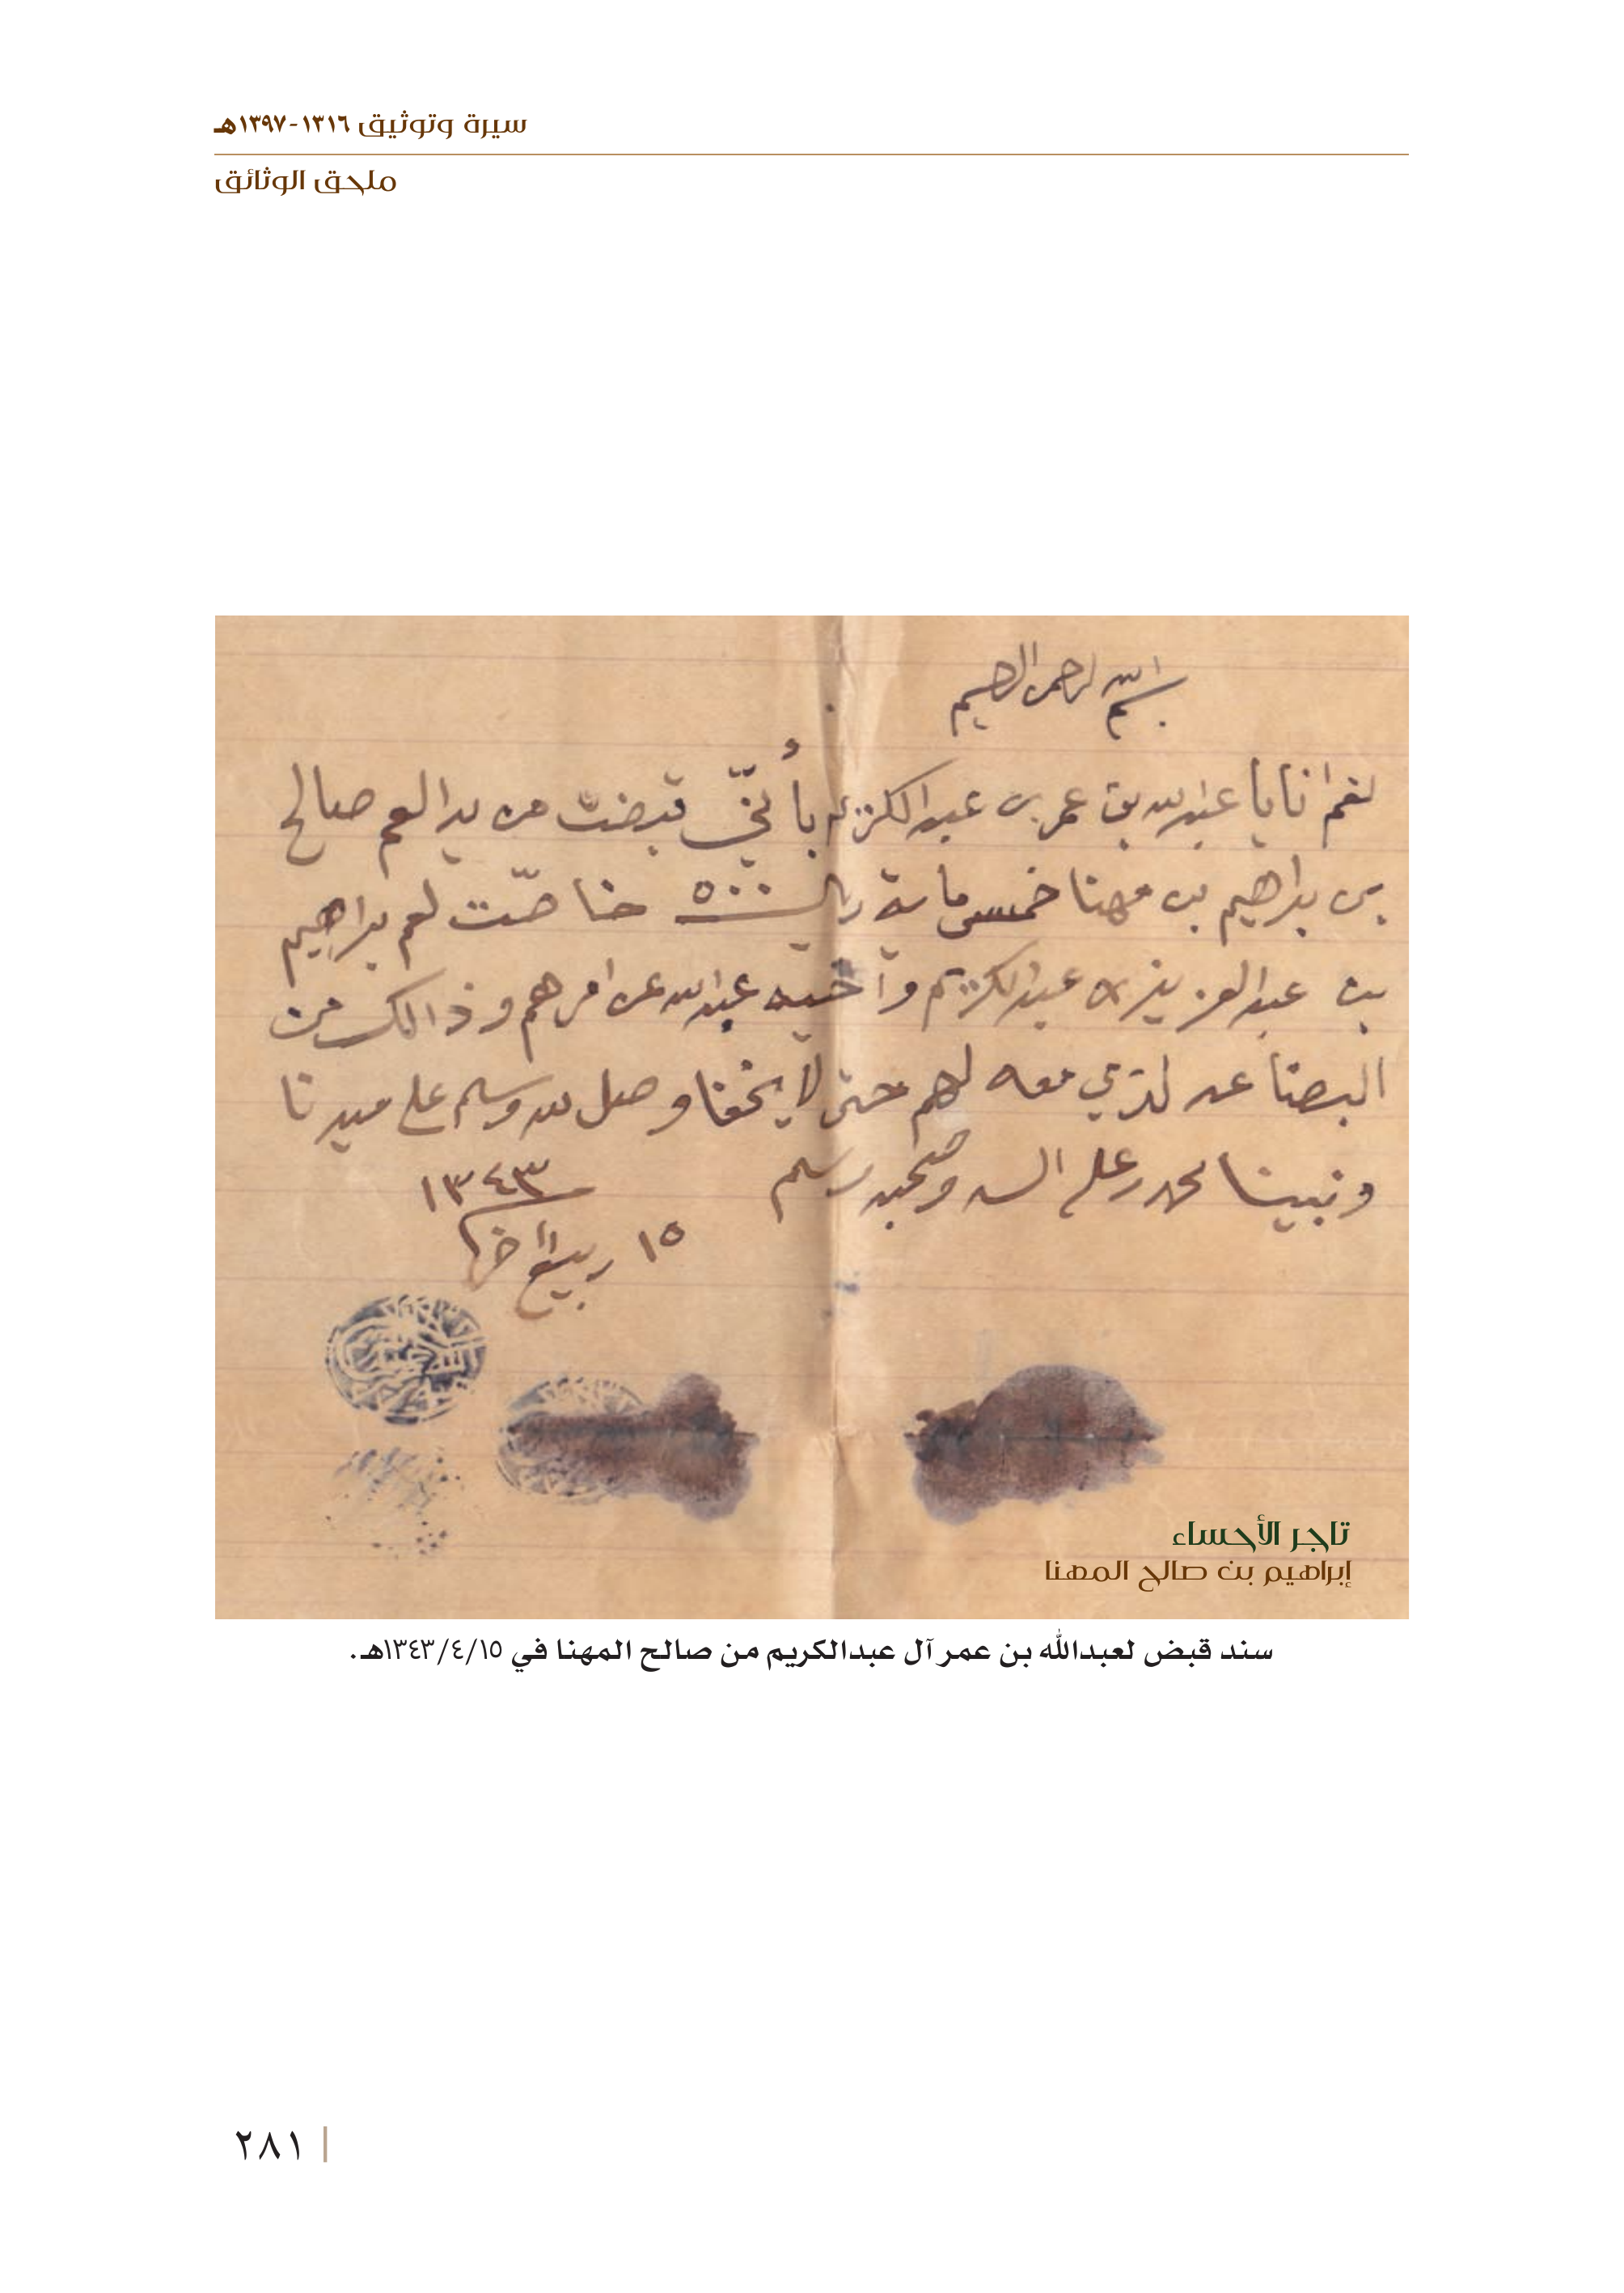 سيرة وتوثيق ١٣١٦-١٣٩٧هـ
ملحق الوثائق
بسم الله الرحمن الرحيم
نعم انا يا عبدالله بن عمر بن عبدالكريم بأنّي قبضت من يد العم صالح
بن براهيم بن مهنا خمس ماية ريال ٥٠٠ خاصّت لعم براهيم
بن عبدالعزيز عبدالكريم وأخيه عبدالله عن امرهم وذالك من
البضا عن لذي معه لهم حتى لا يخفا وصل لله وسلم على سيدنا
ونبينا محمد وعلى اله وصحبه وسلم
١٣٤٣
١٥ ربيع اخر
تاجر الأحساء
إبراهيم بن صالح المهنا
سند قبض لعبدالله بن عمر آل عبدالكريم من صالح المهنا في ١٣٤٣/٤/١٥هـ.
٢٨١